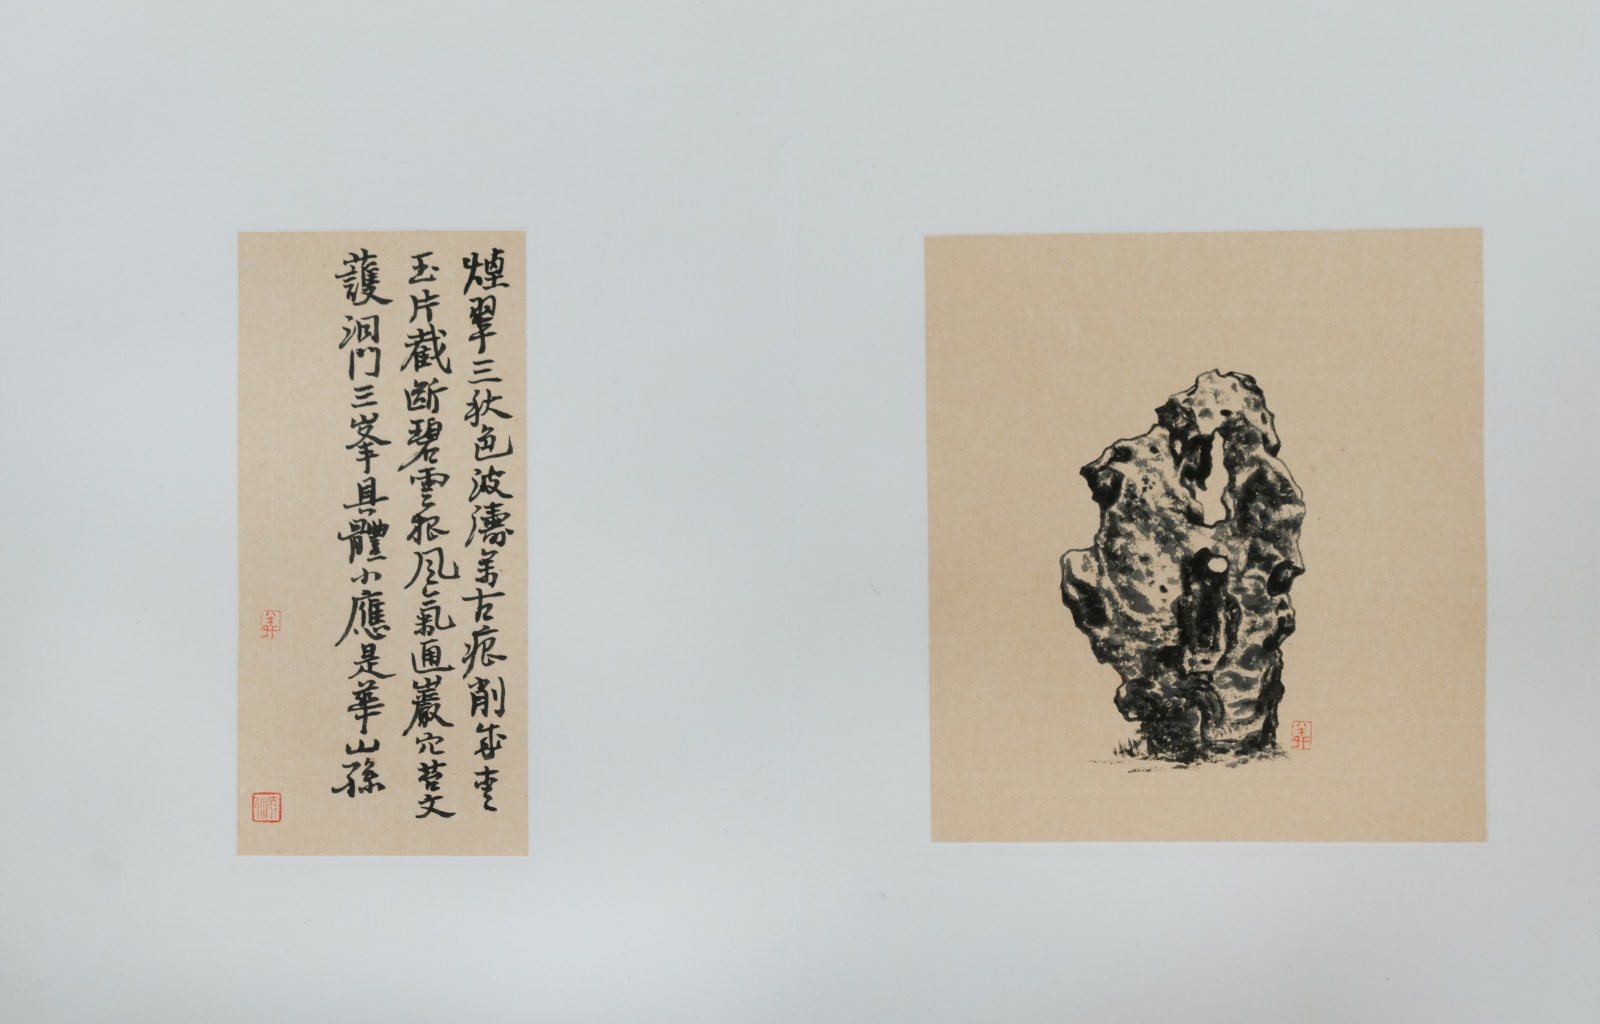 煙翠三秋色波濤萬古痕削成青
玉片截断碧雲根風氣通巖穴苔文
護洞門三峯具體小應是華山孫